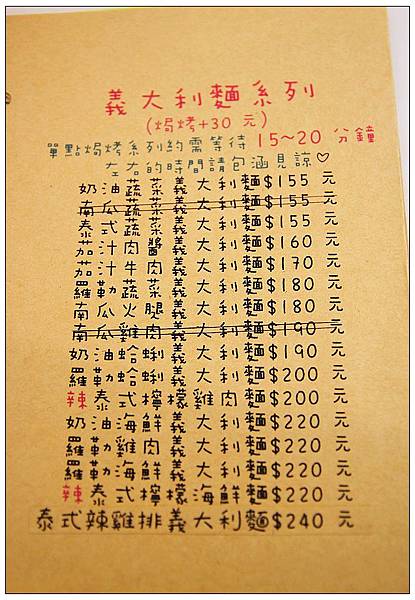 義大利麵系列
(焗烤+30 元)
單點焗烤系列約需等待 15~20 分鐘
左右的時間請包涵見諒♡
奶油蔬菜義大利麵$155 元
南瓜蔬菜義大利麵$155 元
泰式蔬菜義大利麵$155 元
茄汁肉醬義大利麵$160 元
茄汁牛肉義大利麵$170 元
羅勒蔬菜義大利麵$180 元
南瓜火腿義大利麵$180 元
南瓜雞肉義大利麵$190 元
奶油蛤蜊義大利麵$190 元
羅勒蛤蜊義大利麵$200 元
辣泰式檸檬雞肉麵$200 元
奶油海鮮義大利麵$220 元
羅勒雞肉義大利麵$220 元
羅勒海鮮義大利麵$220 元
辣泰式檸檬海鮮麵$220 元
泰式辣雞排義大利麵$240 元